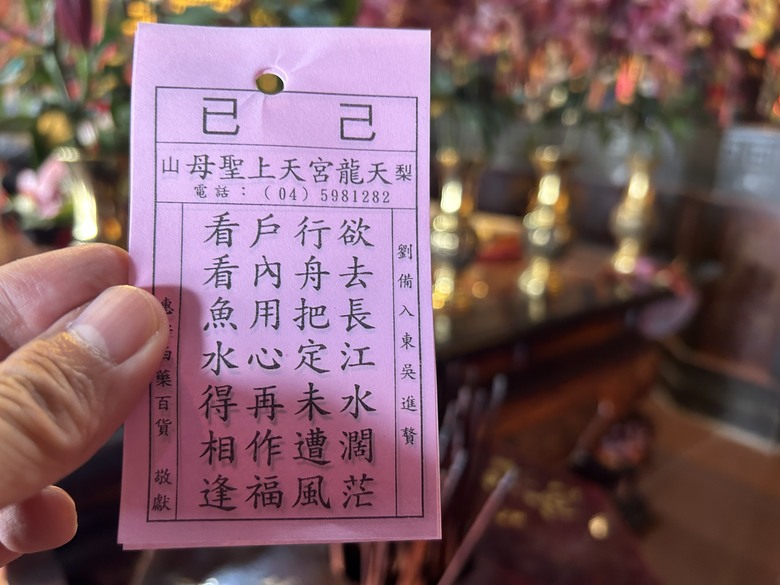 己 巳
梨 天龍宮天上聖母 山
電話：（04）5981282
劉備入東吳進贅
欲去長江水濶茫
行舟把定未遭風
戶內用心再作福
看看魚水得相逢
藥百貨 敬獻